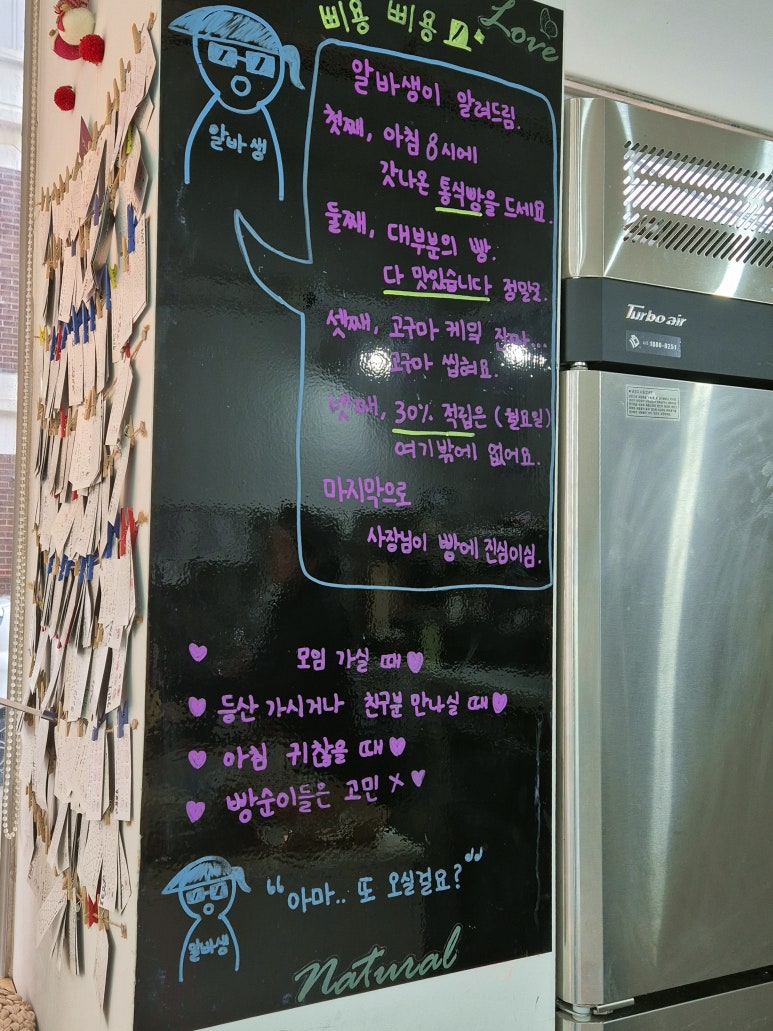 삐용 삐용
Love
알바생이 알려드림.
알바생
첫째, 아침 8시에
갓나온 통식빵을 드세요.
둘째, 대부분의 빵.
다 맛있습니다 정말로.
셋째, 고구마 케잌
고구마 씹혀요.
넷째, 30% 적립은 (월요일)
여기밖에 없어요.
마지막으로
사장님이 빵에 진심이심.
♥ 모임 가실 때♥
♥ 등산 가시거나 친구분 만나실 때♥
♥ 아침 귀찮을 때♥
♥ 빵순이들은 고민 x♥
"아마.. 또 오실걸요?"
알바생
Natural
Turbo air